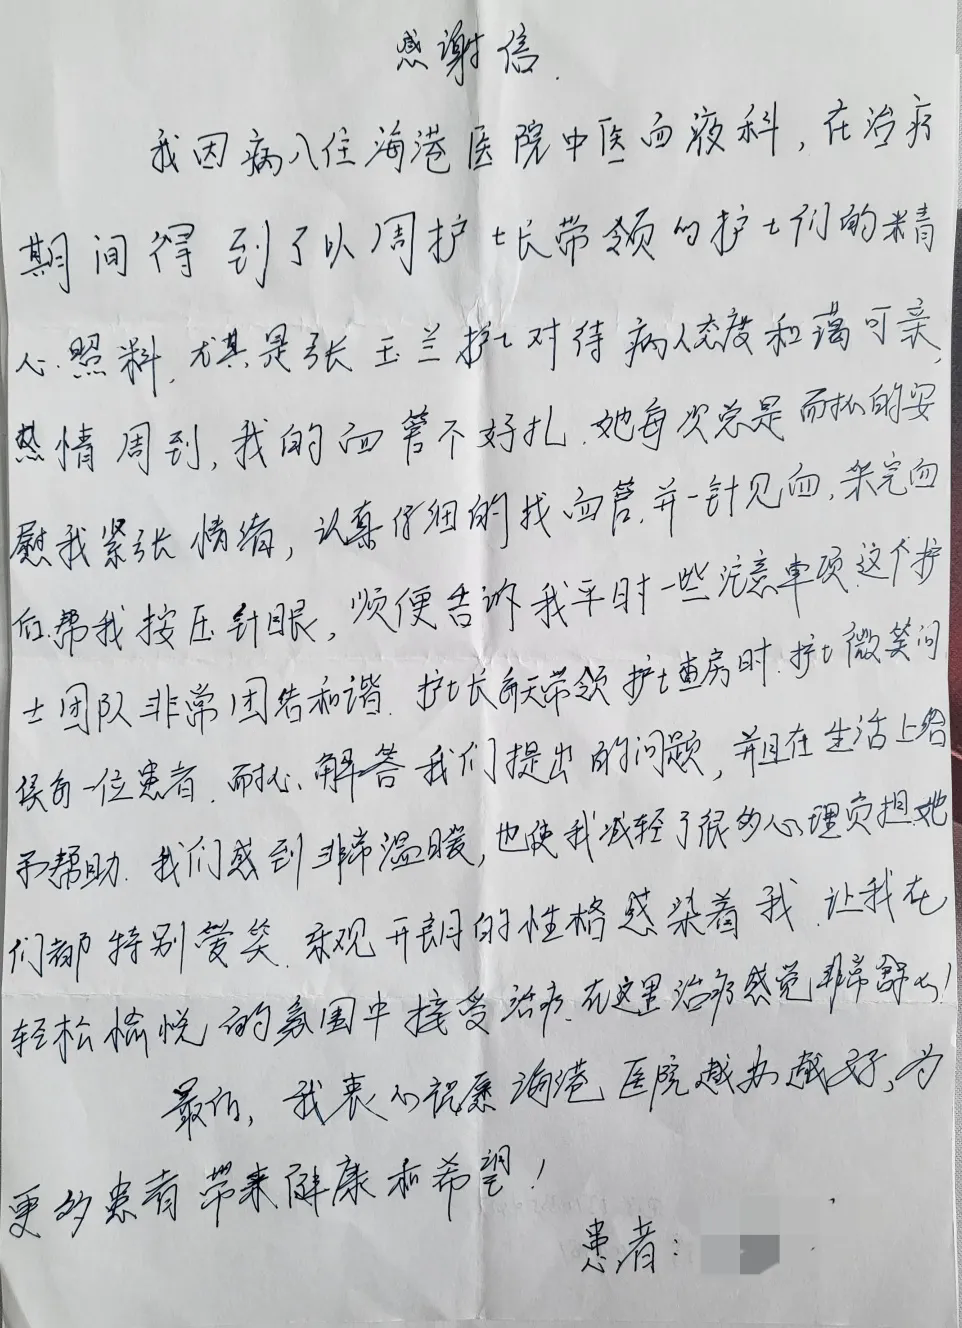 感谢信.
我因病入住海港医院中医血液科,在治疗
期间得到了以周护士长带领的护士们的精
心照料,尤其是张玉兰护士对待病人态度和蔼可亲,
热情周到,我的血管不好扎.她每次总是耐心的安
慰我紧张情绪,认真仔细的找血管.并一针见血,采完血
后.帮我按压针眼,顺便告诉我平时一些注意事项.这个护
士团队非常团结和谐.护士长每天带领护士查房时.护士微笑问
侯每一位患者.耐心解答我们提出的问题,并且在生活上给
予帮助.我们感到非常温暖,也使我减轻了很多心理负担.她
们都特别爱笑.乐观开朗的性格感染着我.让我在
轻松愉悦的氛围中接受治疗.在这里治疗感觉非常舒心!
最后,我衷心祝愿海港医院越办越好,为
更多患者带来健康和希望!
患者: